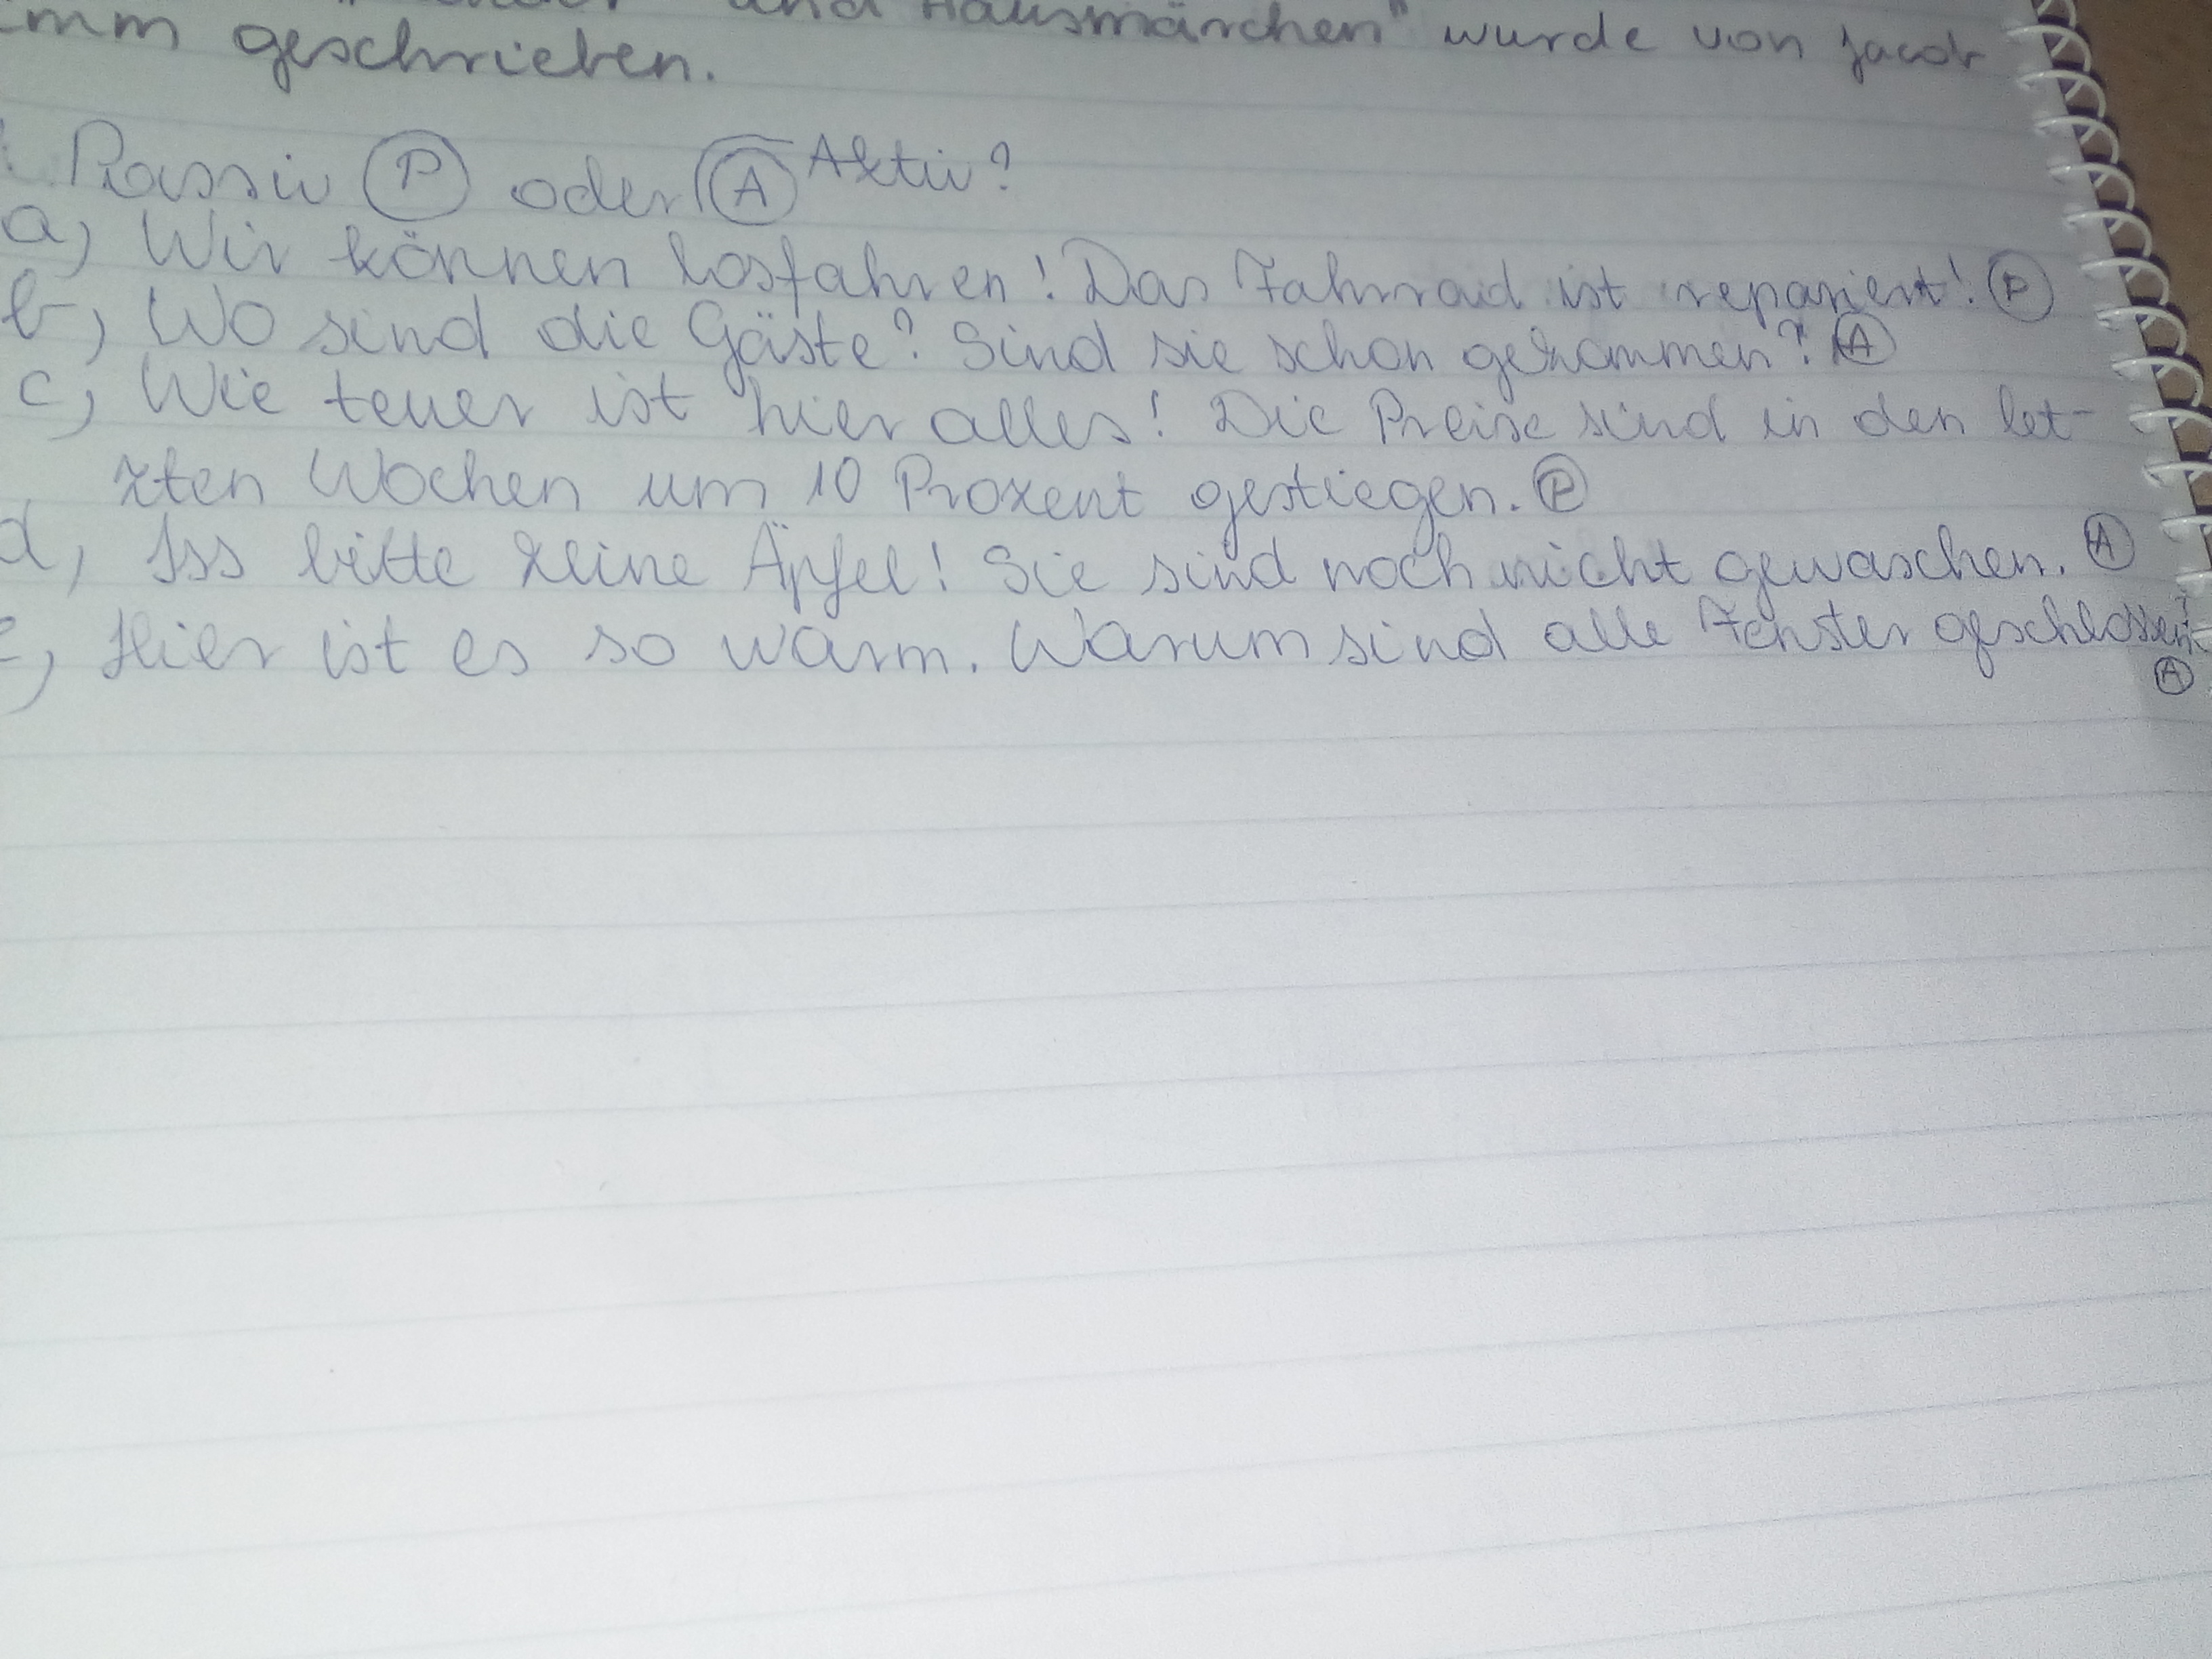 und Hausmärchen" wurde von Jacob
imm geschrieben.
Passiv P oder A Aktiv?
a) Wir können losfahren! Das Fahrrad ist repariert! P
b) Wo sind die Gäste? Sind sie schon gekommen? A
c) Wie teuer ist hier alles! Die Preise sind in den let-
zten Wochen um 10 Prozent gestiegen. P
d) Iss bitte keine Äpfel! Sie sind noch nicht gewaschen. A
e) Hier ist es so warm. Warum sind alle Fenster geschlossen?
A